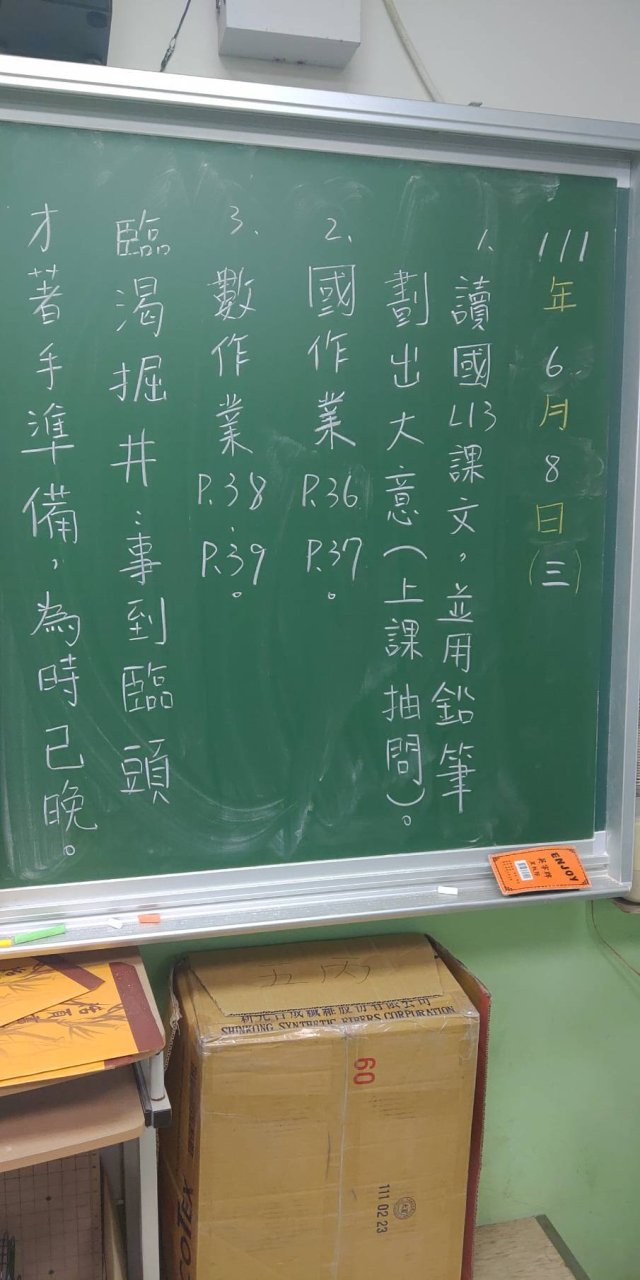 111年6月8日(三)
1、讀國L13課文，並用鉛筆
劃出大意(上課抽問)。
2、國作業P.36 P.37。
3、數作業P.38、P.39。
臨渴掘井：事到臨頭
才著手準備，為時已晚。
ENJOY
五丙
新光合成纖維股份有限公司
SHINKONG SYNTHETIC FIBERS CORPORATION
60
111 02 23